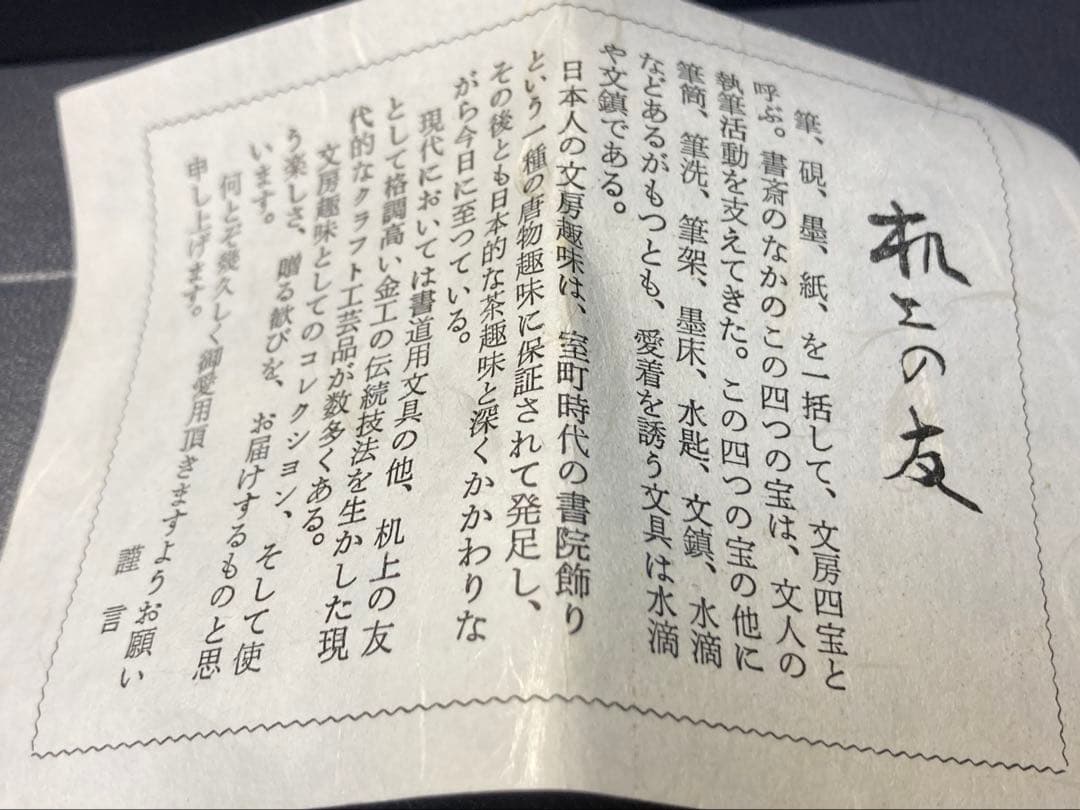 机上の友
筆、硯、墨、紙、を一括して、文房四宝と
呼ぶ。書斎のなかのこの四つの宝は、文人の
執筆活動を支えてきた。この四つの宝の他に
筆筒、筆洗、筆架、墨床、水匙、文鎮、水滴
などあるがもつとも、愛着を誘う文具は水滴
や文鎮である。
日本人の文房趣味は、室町時代の書院飾り
という一種の唐物趣味に保証されて発足し、
その後とも日本的な茶趣味と深くかかわりな
がら今日に至つている。
現代においては書道用文具の他、机上の友
として格調高い金工の伝統技法を生かした現
代的なクラフト工芸品が数多くある。
文房趣味としてのコレクション、そして使
う楽しさ、贈る歓びを、お届けするものと思
います。
何とぞ幾久しく御愛用頂きますようお願い
申し上げます。
謹言